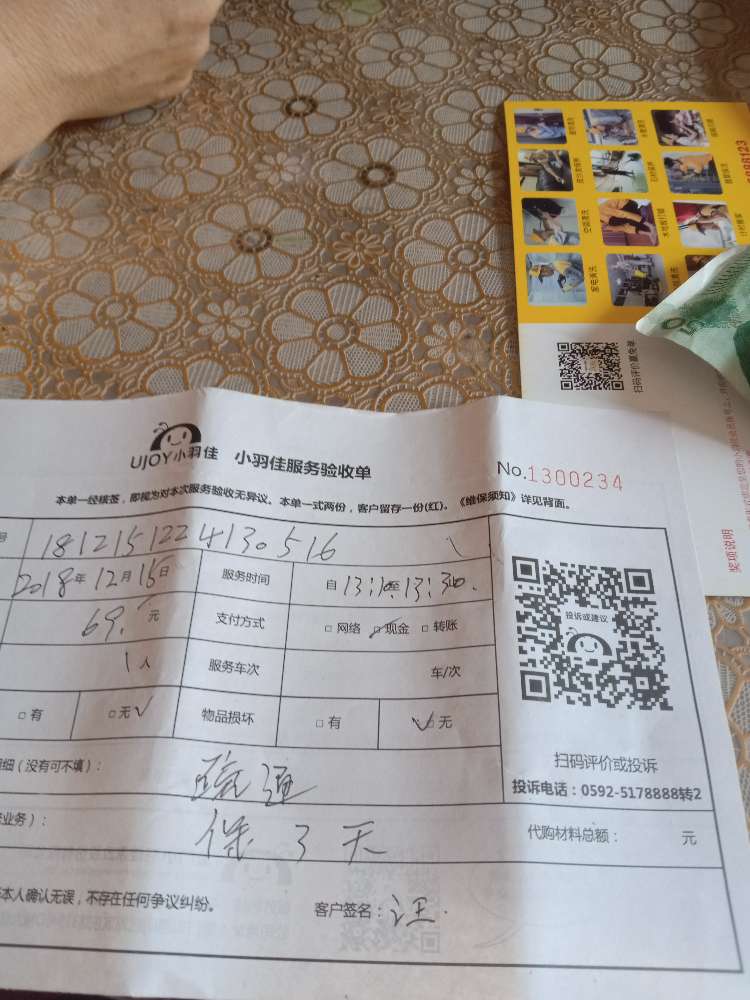 UJOY小羽佳 小羽佳服务验收单
No.1300234
本单一经核签，即视为对本次服务验收无异议。本单一式两份，客户留存一份(红)。《维保须知》详见背面。
号 1812151224130516
2018年12月15日 服务时间 自13:10至13:30.
69. 元 支付方式 □网络 □现金 □转账
1人 服务车次 车/次
□有 □无 物品损坏 □有 □无
投诉或建议
扫码评价或投诉
投诉电话：0592-5178888转2
细（没有可不填）： 疏通
业务）： 保3天
代购材料总额： 元
本人确认无误，不存在任何争议纠纷。 客户签名：汪.
扫码评价赢免单
奖项说明
空调清洗
家电清洗
木地板打蜡